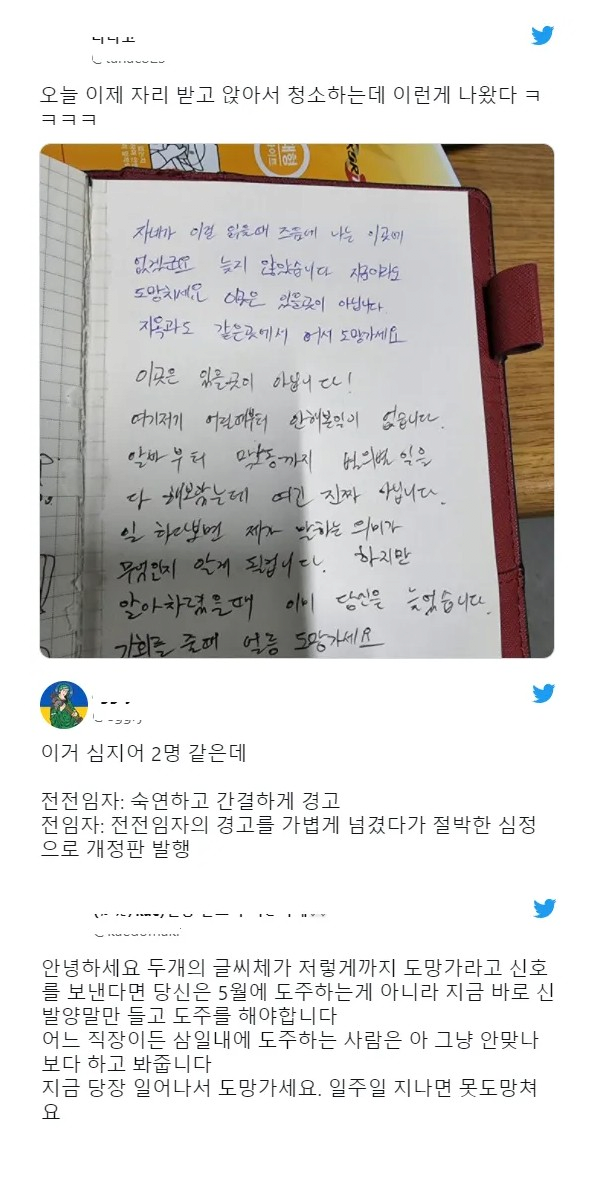 오늘 이제 자리 받고 앉아서 청소하는데 이런게 나왔다 ㅋ
ㅋㅋㅋ
자네가 이걸 읽을때 즈음에 나는 이곳에
없겠군요 늦지 않았습니다 지금이라도
도망치세요 이곳은 있을곳이 아닙니다
지옥과도 같은곳에서 어서 도망가세요
이곳은 있을곳이 아닙니다!
여기저기 어릴때부터 안해본일이 없습니다.
알바부터 막노동까지 별의별 일을
다 해보았는데 여긴 진짜 아닙니다.
일 하다보면 제가 말하는 의미가
무엇인지 알게 될겁니다. 하지만
알아차렸을때 이미 당신은 늦었습니다.
기회를 줄때 얼른 도망가세요
이거 심지어 2명 같은데
전전임자: 숙연하고 간결하게 경고
전임자: 전전임자의 경고를 가볍게 넘겼다가 절박한 심정
으로 개정판 발행
안녕하세요 두개의 글씨체가 저렇게까지 도망가라고 신호
를 보낸다면 당신은 5월에 도주하는게 아니라 지금 바로 신
발양말만 들고 도주를 해야합니다
어느 직장이든 삼일내에 도주하는 사람은 아 그냥 안맞나
보다 하고 봐줍니다
지금 당장 일어나서 도망가세요. 일주일 지나면 못도망쳐
요